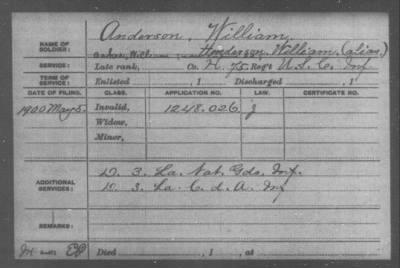 Anderson, William,
NAME OF SOLDIER: Henderson, William, (alias)
SERVICE: Late rank, Co. H, 75 Reg't U.S.C. Inf
TERM OF SERVICE: Enlisted , 1 Discharged , 1
DATE OF FILING. CLASS. APPLICATION NO. LAW. CERTIFICATE NO.
1900 May 5. Invalid, 1248.026
Widow,
Minor,
D. 3. La. Nat. Gds. Inf.
ADDITIONAL SERVICES: D. 3. La. C. d. A. Inf
REMARKS:
Died , 1 , at